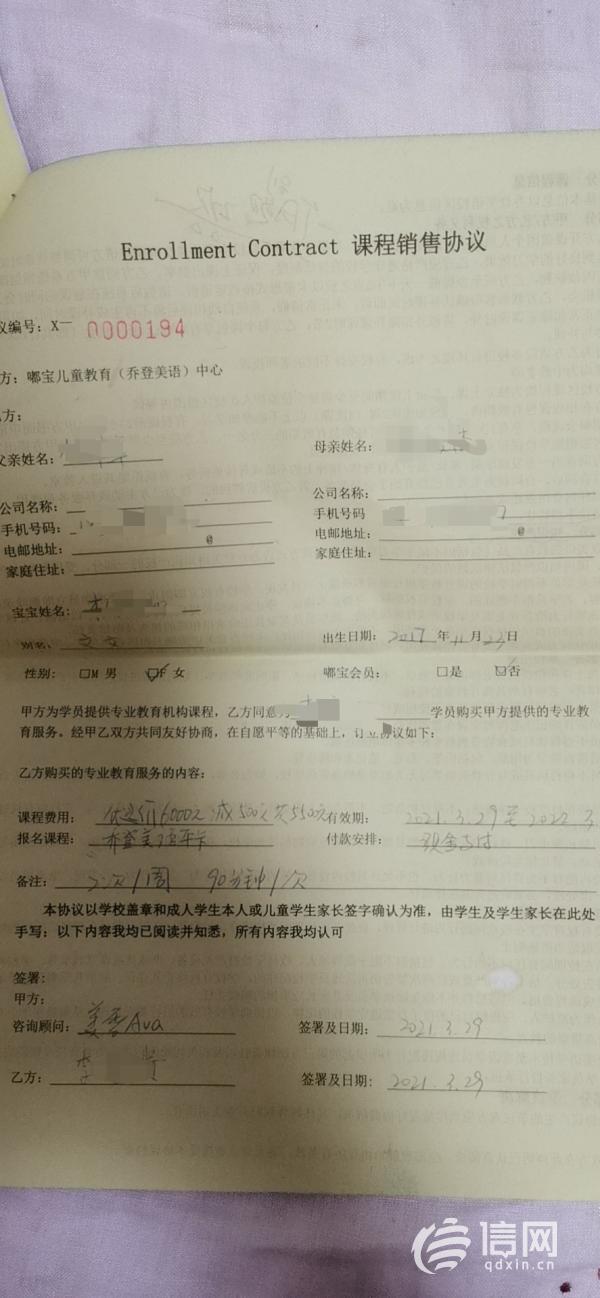 Enrollment Contract 课程销售协议
议编号：X— 0000194
方：嘟宝儿童教育（乔登美语）中心
方：
父亲姓名： 母亲姓名：
公司名称： 公司名称：
手机号码： 手机号码
电邮地址： @ 电邮地址： @
家庭住址： 家庭住址：
宝宝姓名： 李
别名： 出生日期： 2017 年 11 月 23 日
性别： □M 男 ☑F 女 嘟宝会员： □是 ☑否
甲方为学员提供专业教育机构课程，乙方同意为 学员购买甲方提供的专业教
育服务。经甲乙双方共同友好协商，在自愿平等的基础上，订立协议如下：
乙方购买的专业教育服务的内容：
课程费用： 优选价6000元减500元共5500元 有效期： 2021.3.29至2022.3
报名课程： 乔登美语年卡 付款安排： 现金支付
备注： 2次/1周 90分钟/次
本协议以学校盖章和成人学生本人或儿童学生家长签字确认为准，由学生及学生家长在此处
手写：以下内容我均已阅读并知悉，所有内容我均认可
签署：
甲方：
咨询顾问： Ava 签署及日期： 2021.3.29
乙方： 李 签署及日期： 2021.3.29
信网
qdxin.cn